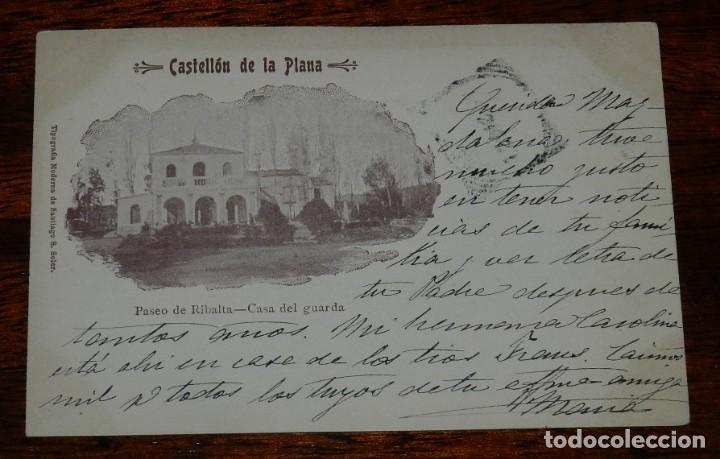 Castellón de la Plana
Tipografía Moderna de Santiago S. Soler.
Paseo de Ribalta—Casa del guarda
Querida Mag-
dalena tuve
mucho gusto
en tener noti
cias de tu fami
lia y ver letra de
tu Padre despues de
tantos anos. Mi hermana Carolina
está ahi en casa de los tios
mil p todos los tuyos de tu afma amiga
Maria
todocoleccion.net